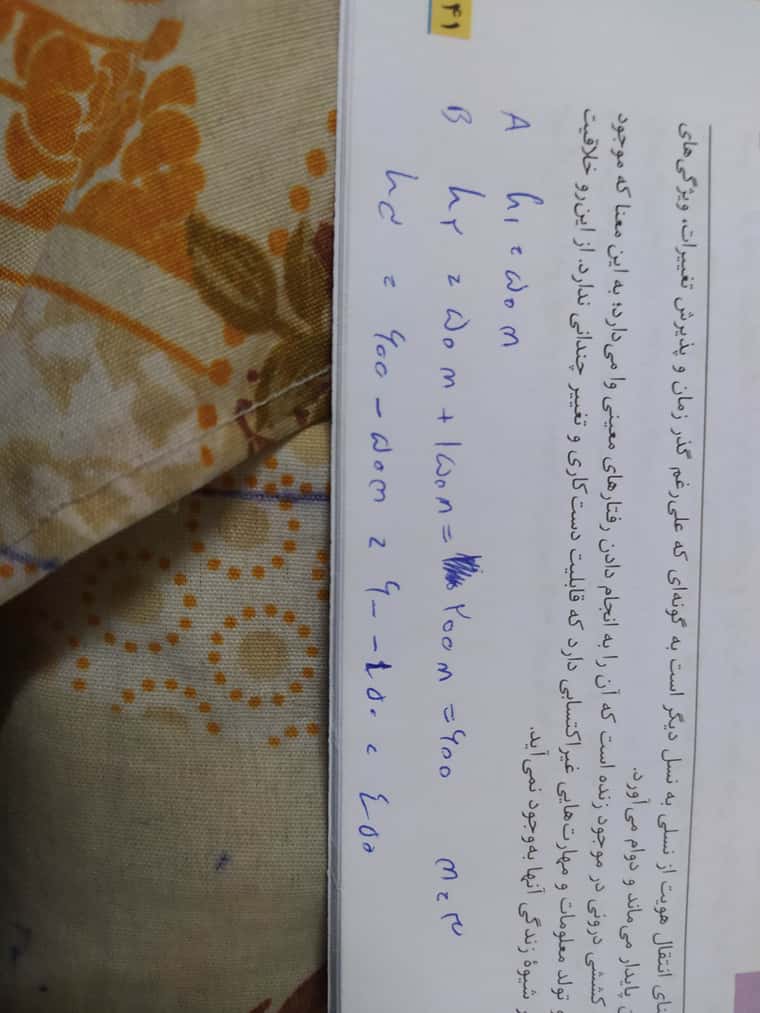 انتقال هویت از نسلی به نسل دیگر است به گونه‌ای که علی‌رغم گذر زمان و پذیرش تغییرات، ویژگی‌های
پایدار می‌ماند و دوام می‌آورد.
کششی درونی در موجود زنده است که آن را به انجام دادن رفتارهای معینی وا می‌دارد؛ به این معنا که موجود
و تولد معلومات و مهارت‌هایی غیراکتسابی دارد که قابلیت دست‌کاری و تغییر چندانی ندارد. از این‌رو خلاقیت
شیوهٔ زندگی آنها به‌وجود نمی‌آید.
A h₁ = ۵۰m
B h۲ = ۵۰m + ۱۵۰m = ۲۰۰m = ۶۰۰ m = ۳
hd = ۶۰۰ - ۵۰m = ۶۰۰ - ۱۵۰ = ۴۵۰
۴۱